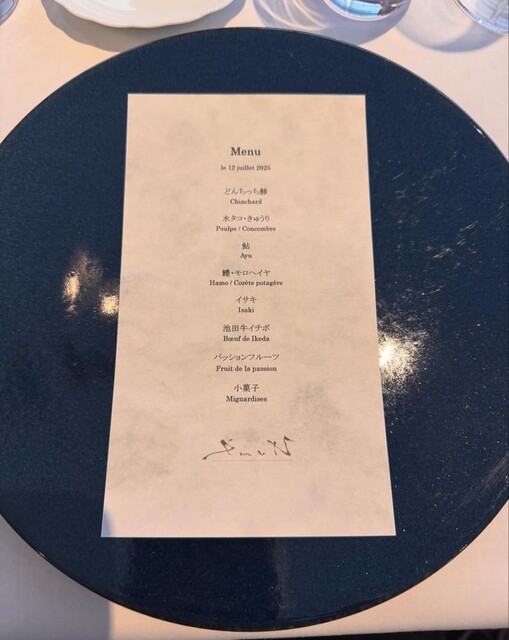 Menu
le 12 juillet 2025
どんちっち鯵
Chinchard
水タコ・きゅうり
Poulpe / Concombre
鮎
Ayu
鱧・モロヘイヤ
Hamo / Corète potagère
イサキ
Isaki
池田牛イチボ
Bœuf de Ikeda
パッションフルーツ
Fruit de la passion
小菓子
Mignardises